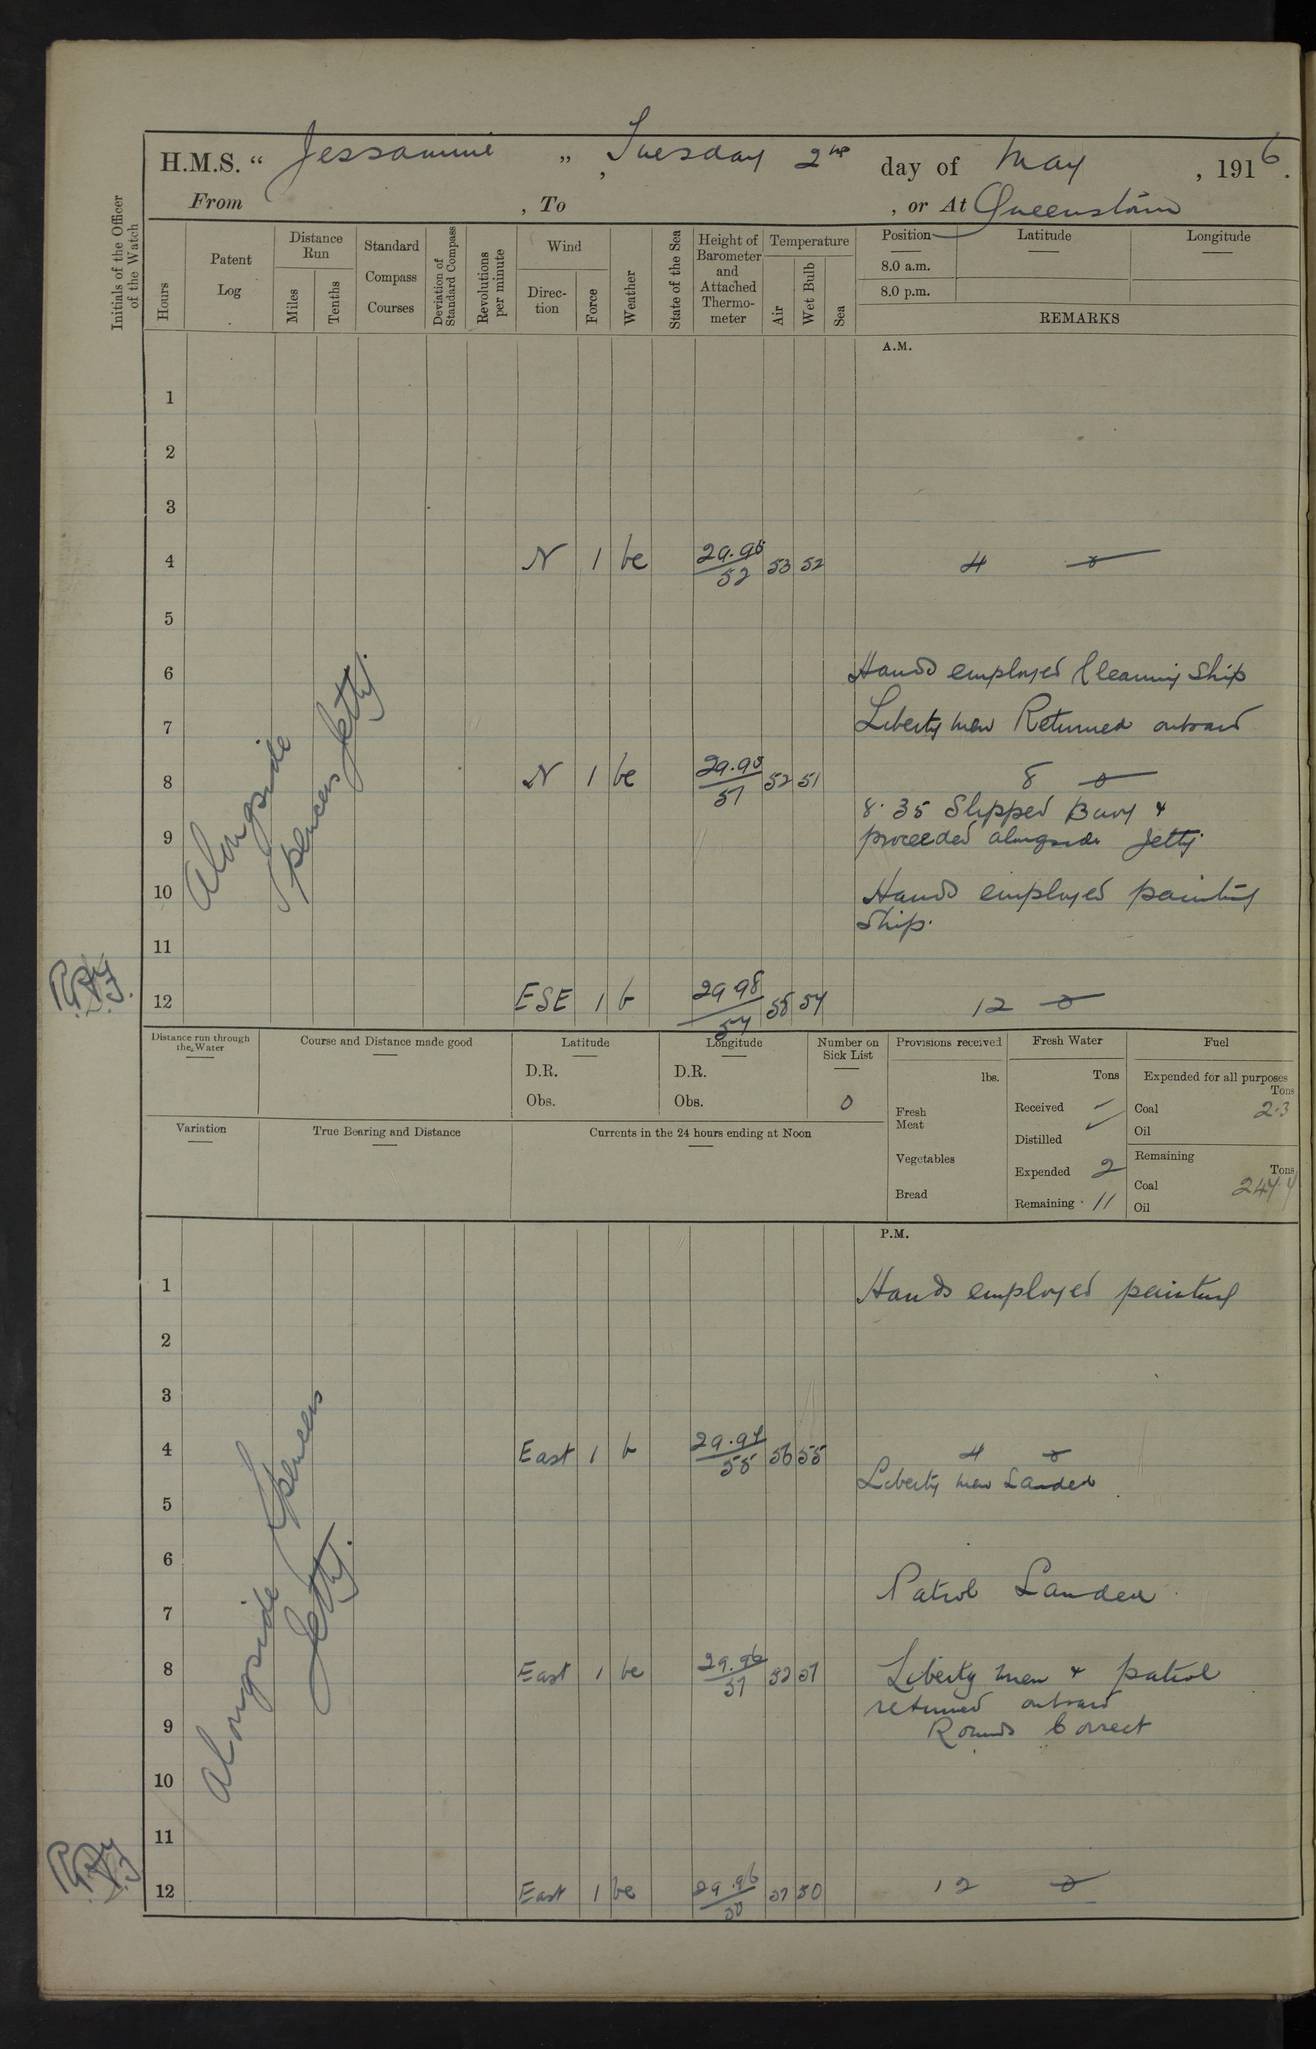 H.M.S. " Jessamine " , Tuesday 2nd day of May , 1916.
From , To , or At Queenstown
Initials of the Officer of the Watch
Hours
Patent Log
Distance Run
Miles
Tenths
Standard Compass Courses
Deviation of Standard Compass
Revolutions per minute
Wind
Direc-tion
Force
Weather
State of the Sea
Height of Barometer and Attached Thermo-meter
Temperature
Air
Wet Bulb
Sea
Position Latitude Longitude
8.0 a.m.
8.0 p.m.
REMARKS
A.M.
1
2
3
4 N 1 bc 29.95/52 53 52 4
5
6 Hands employed Cleaning Ship
7 Liberty men Returned onboard
8 N 1 bc 52 51 8
8.35 Slipped Buoy &
9 proceeded alongside Jetty
10 Hands employed painting
Ship.
11
12 ESE 1 b 29 98/54 55 54 12
Alongside
Spencers Jetty.
Distance run through the Water
Course and Distance made good
Latitude
D.R.
Obs.
Longitude
D.R.
Obs.
Number on Sick List
0
Provisions received
lbs.
Fresh Meat
Vegetables
Bread
Fresh Water
Tons
Received
Distilled
Expended 2
Remaining 11
Fuel
Expended for all purposes
Tons
Coal 2.3
Oil
Remaining
Tons
Coal
Oil
Variation
True Bearing and Distance
Currents in the 24 hours ending at Noon
P.M.
1 Hands employed painting
2
3
4 East 1 b 29.97/55 56 55 4
Liberty men Landed
5
6
Patrol Landed
7
8 East 1 bc 29.96/51 52 51 Liberty men & patrol
returned onboard
9 Rounds Correct
10
11
12 East 1 bc 29.96/50 51 50 12
Alongside Spencers
Jetty.